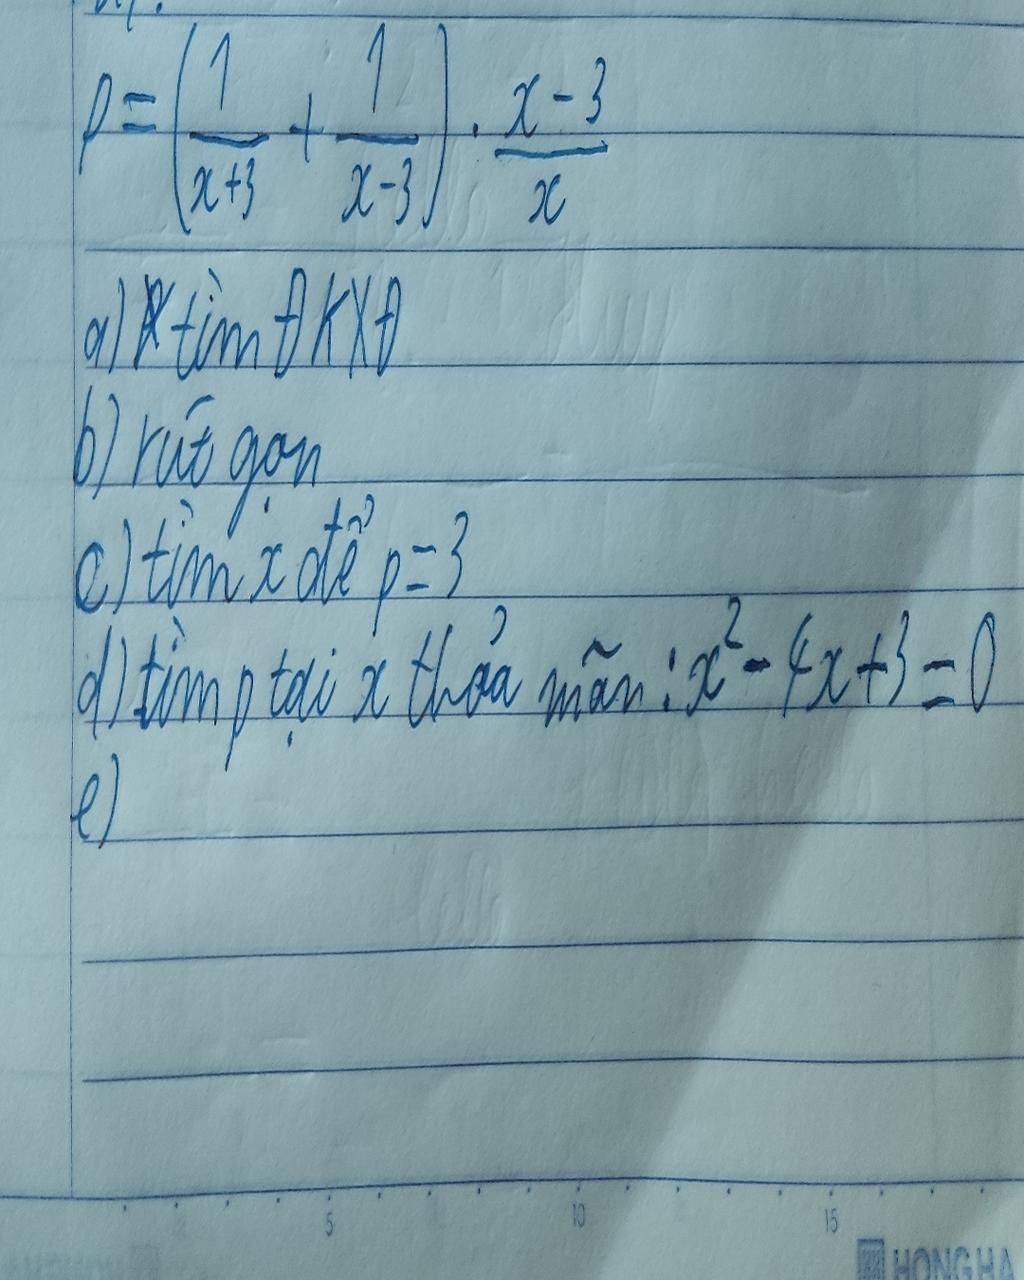 P = (1/(x+3) + 1/(x-3)) . (x-3)/x
a) tìm ĐKXĐ
b) rút gọn
c) tìm x để p = 3
d) tìm p tại x thỏa mãn : x² - 4x + 3 = 0
e)
5 10 15
HONG HA